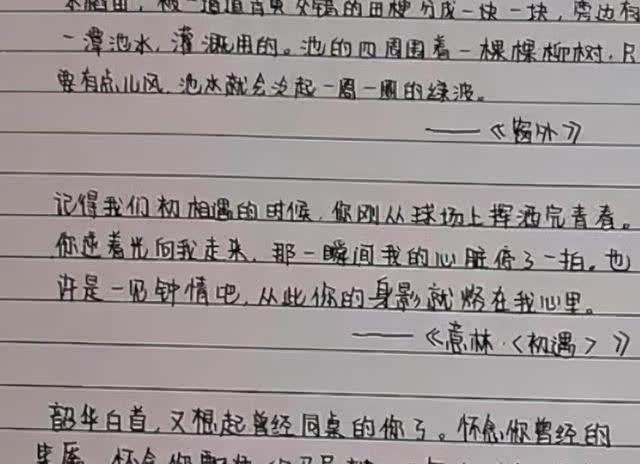 被一道道首尾交错的田梗分成一块一块，旁边有
一潭池水，灌溉用的。池的四周围着一棵棵柳树，只
要有点儿风，池水就会泛起一圈一圈的绿波。
——《窗外》
记得我们初相遇的时候，你刚从球场上挥洒完青春。
你逆着光向我走来，那一瞬间我的心脏停了一拍。也
许是一见钟情吧，从此你的身影就烙在我心里。
——《意林·〈初遇〉》
韶华白首，又想起曾经同桌的你了。怀念你曾经的
怀念你